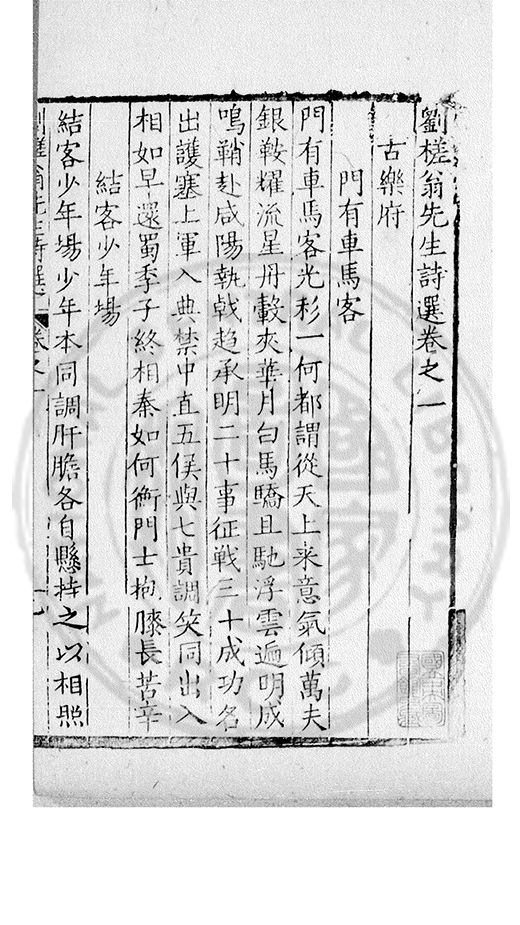 劉槎翁先生詩選卷之一
古樂府
門有車馬客
門有車馬客光彩一何都謂從天上来意氣傾萬夫
銀鞍耀流星丹轂夾華月白馬驕且馳浮雲遍明滅
鳴鞘赴咸陽執戟趋承明二十事征戦三十成功名
出護塞上軍入典禁中直五侯與七貴調笑同出入
相如早還蜀季子終相秦如何衡門士抱膝長苦辛
結客少年場
結客少年場少年本同調肝膽各自懸持之以相照